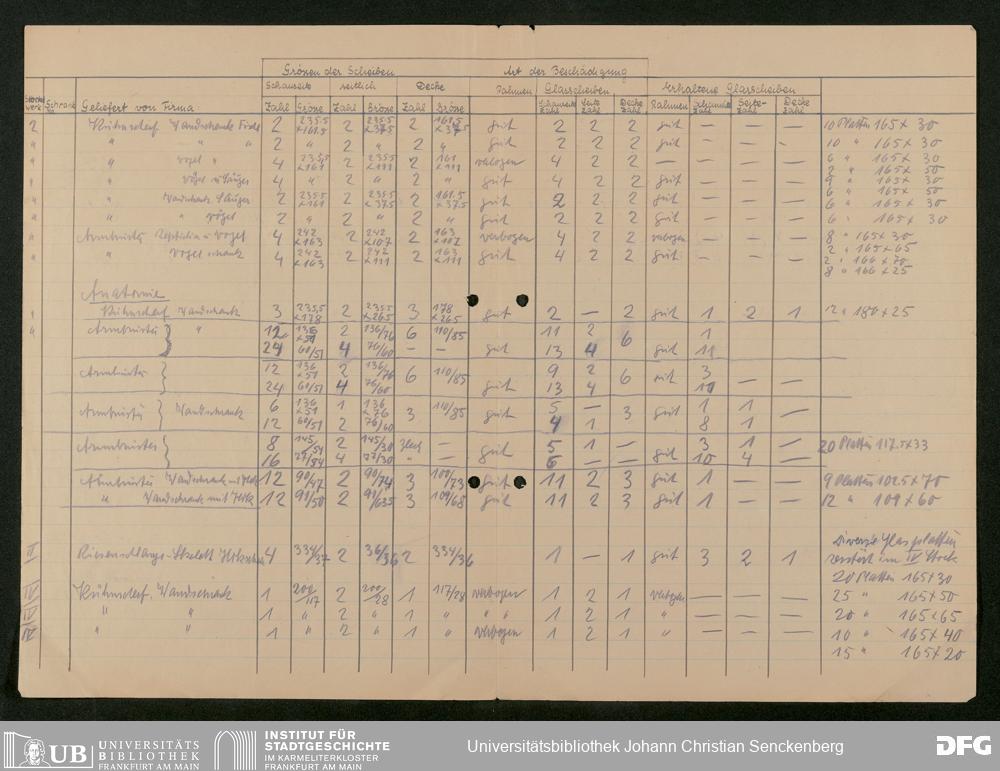 Grössen der Scheiben Art der Beschädigung
Schauseite seitlich Decke Rahmen Glasscheiben Erhaltene Glasscheiben
Schrank Geliefert von Firma: Zahl Grösse Zahl Grösse Zahl Grösse Schauseite Zahl Seite Zahl Decke Zahl Rahmen Zahl Seite-Zahl Decke Zahl
2 Kühnscherf Wandschrank 2 235.5 x 161.5 2 235.5 x 37.5 2 161.5 x 37.5 gut 2 2 2 gut — — — 10 Platten 165 x 30
" " " " 2 " 2 " 2 " gut 2 2 2 gut — — - 10 " 165 x 30
" " Vögel " 4 235.5 x 161 2 235.5 x 111 2 161 x 111 verbogen 4 2 2 — — — — 6 " 165 x 30
2 " 165 x 50
" " Vögel u. Säuger 4 " 2 " 2 " gut 4 2 2 gut — — — 9 " 165 x 30
6 " 165 x 50
" " Wandschrank Säuger 2 235.5 x 161 2 235.5 x 37.5 2 161.5 x 37.5 gut 2 2 2 gut — — — 6 " 165 x 30
" " " Vögel 2 " 2 " 2 " gut 2 2 2 gut — — — 6 " 165 x 30
" Armbrüster Reptilien u. Vögel 4 242 x 163 2 242 x 107 2 163 x 107 verbogen 4 2 2 verbogen — — — 8 " 165 x 30
2 " 165 x 65
" " Vogelschrank 4 242 x 163 2 242 x 111 2 163 x 111 gut 4 2 2 gut — — — 2 " 166 x 70
8 " 166 x 25
Anatomie
" Kühnscherf Wandschrank 3 235.5 x 178 2 235.5 x 26.5 3 178 x 26.5 gut 2 — 2 gut 1 2 1 12 " 180 x 25
" Armbrüster } " 12 136 x 51 2 136/76 6 110/85 11 2 6 1
24 60/51 4 76/60 — — gut 13 4 gut 11
Armbrüster } 12 136 x 51 2 136/76 6 110/85 9 2 6 3
24 60/51 4 76/60 gut 13 4 10 — —
Armbrüster } Wandschrank 6 136 x 51 1 136 x 76 3 110/85 gut 5 — 3 gut 1 1 —
12 60/51 2 76/60 4 1 8 1
Armbrüster } 8 145/54 2 145/30 — 5 1 — 3 1 — 20 Platten 117.5 x 33
16 77/84 4 77/30 " — gut 6 — — gut 10 4 —
Armbrüster Wandschrank mit 12 90/47 2 90/74 3 100/73 gut 11 2 3 gut 1 — — 9 Platten 102.5 x 70
" Wandschrank mit 12 91/50 2 91/63.5 3 109/68 gut 11 2 3 gut 1 — — 12 " 109 x 60
Diverse Glasplatten
II Riesenschlange-Skelett 4 334/37 2 36/36 2 334/36 1 — 1 gut 3 2 1 zerstört im IV Stock
20 Platten 165 x 30
IV Kühnscherf Wandschrank 1 200/117 2 200/28 1 117/28 verbogen 1 2 1 verbogen — — — 25 " 165 x 50
IV " " 1 " 2 " 1 " " " 1 2 1 " — — — 20 " 165 x 65
IV " " 1 " 2 " 1 " verbogen 1 2 1 " — — — 10 " 165 x 40
15 " 165 x 20
UB UNIVERSITÄTS
BIBLIOTHEK
FRANKFURT AM MAIN
INSTITUT FÜR
STADTGESCHICHTE
IM KARMELITERKLOSTER
FRANKFURT AM MAIN
Universitätsbibliothek Johann Christian Senckenberg
DFG